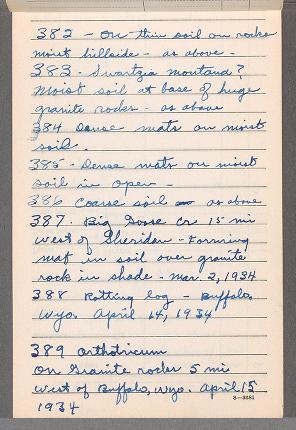 382 - On thin soil on rocks
moist hillside - as above -
383. Swartzia montana?
Moist soil at base of huge
granite rocks - as above
384 Dense mats on moist
soil.
385 - Dense mats on moist
soil in open -
386 Coarse soil as above
387. Big Goose Cr 15 mi
west of Sheridan - Forming
mat in soil over granite
rock in shade - Mar. 2, 1934
388 Rotting log - Buffalo,
Wyo. April 14, 1934
389 Orthotricum
on Granite rocks 5 mi
west of Buffalo, Wyo. April 15
1934